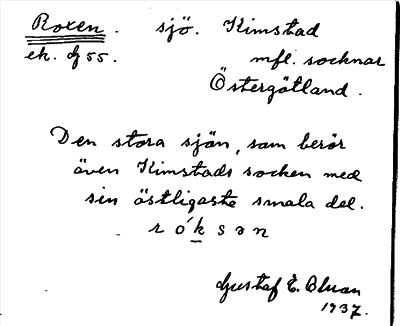 Roxen. sjö. Kimstad
ek. bl 55. mfl. socknar
Östergötland.
Den stora sjön, som berör
även Kimstads socken med
sin östligaste smala del.
r ó k s ə n
Gustaf E. Bluan
1937.